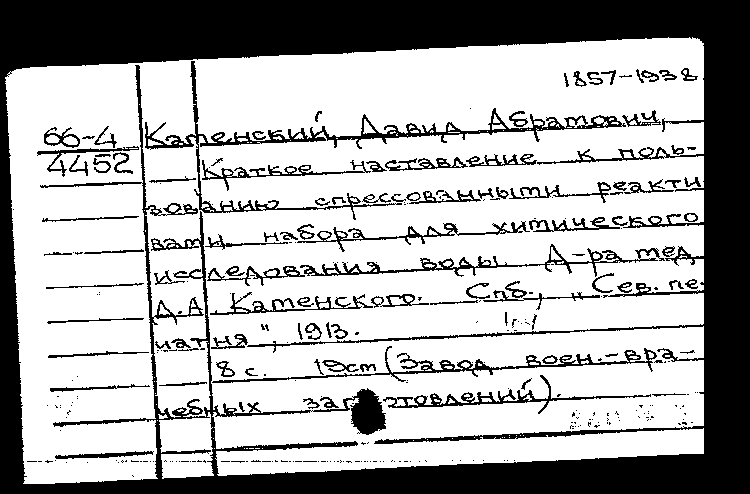 1857-1938
66-4 Каменский, Давид Абрамович,
4452 Краткое наставление к поль-
зованию спрессованными реакти
вами набора для химического
исследования воды. Д-ра мед.
Д.А. Каменского. Спб., „Сев. пе-
чатня", 1913.
8 с. 19см (Завод воен.-вра-
чебных заготовлений).